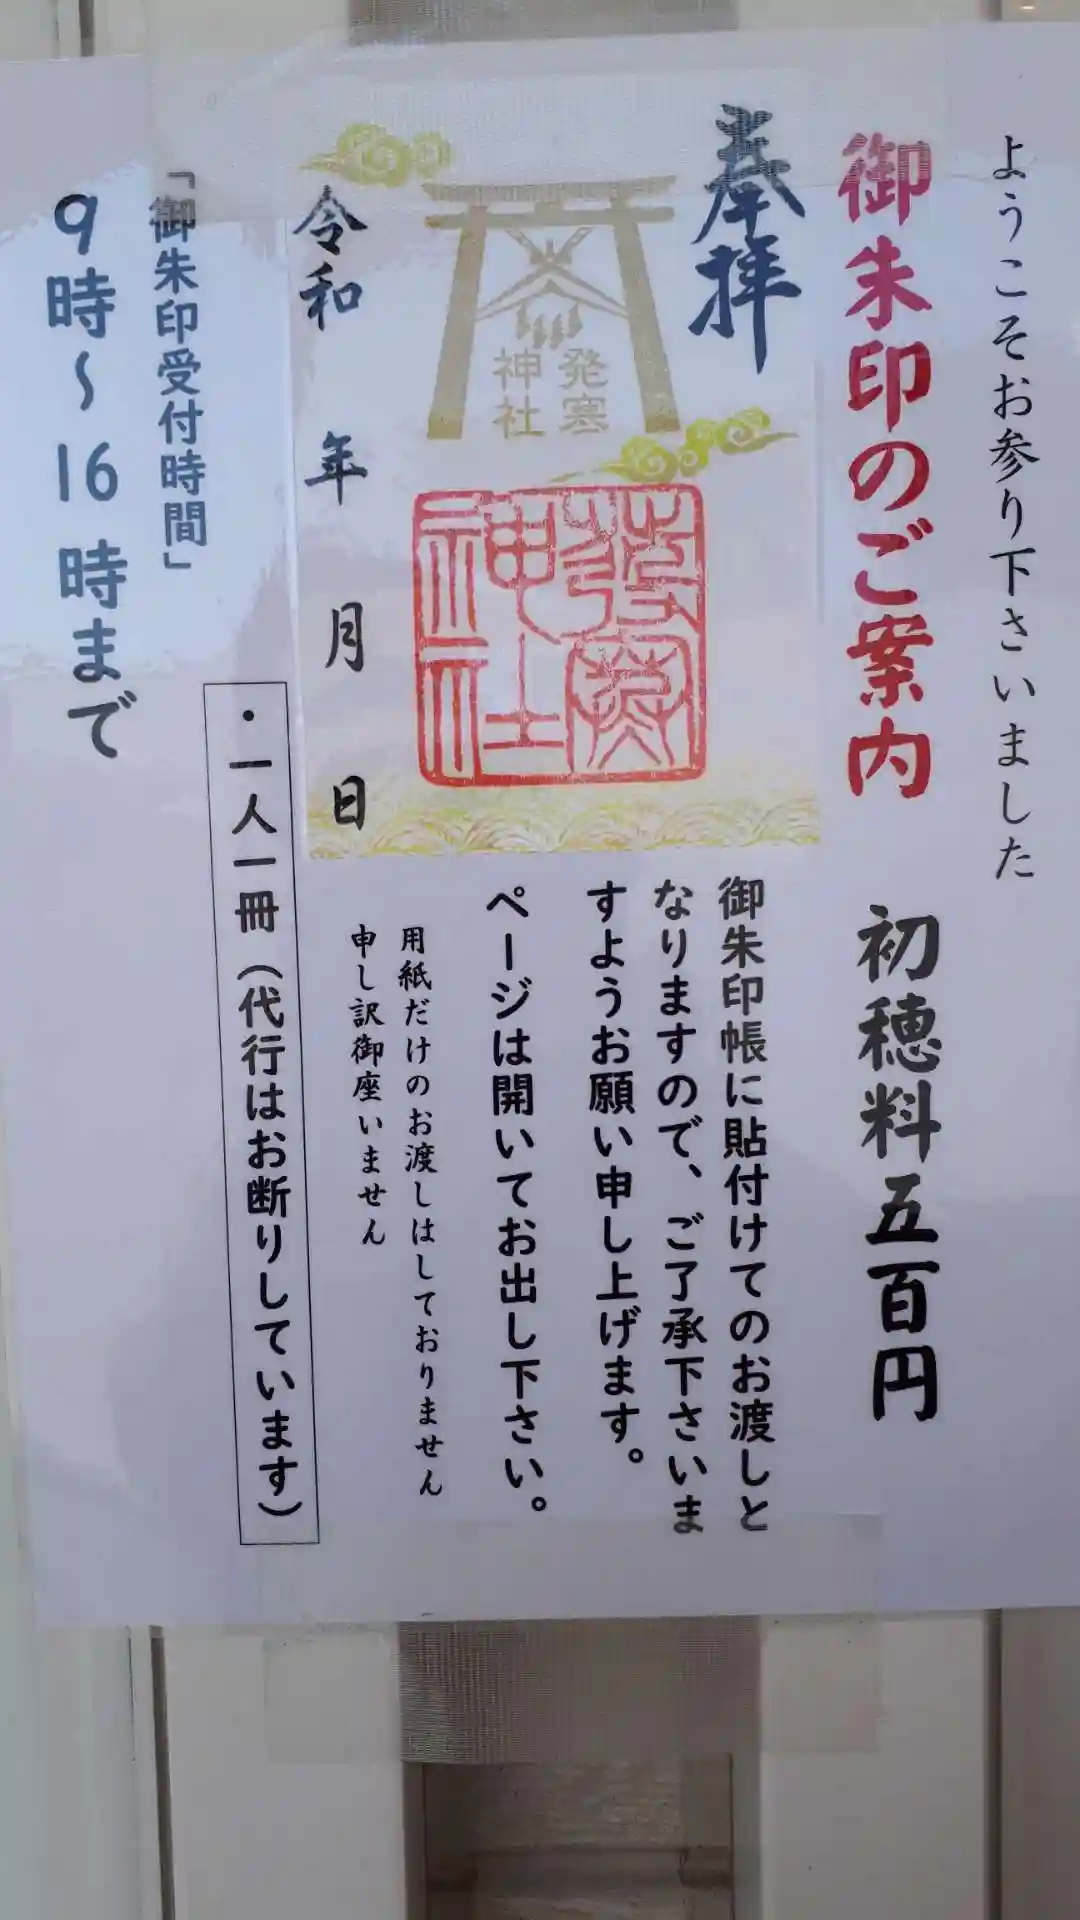 ようこそお参り下さいました
御朱印のご案内 初穂料五百円
奉拝
発寒
神社
発寒
神社
令和 年 月 日
御朱印帳に貼付けてのお渡しと
なりますので、ご了承下さいま
すようお願い申し上げます。
ページは開いてお出し下さい。
用紙だけのお渡しはしておりません
申し訳御座いません
・一人一冊(代行はお断りしています)
「御朱印受付時間」
9時~16時まで